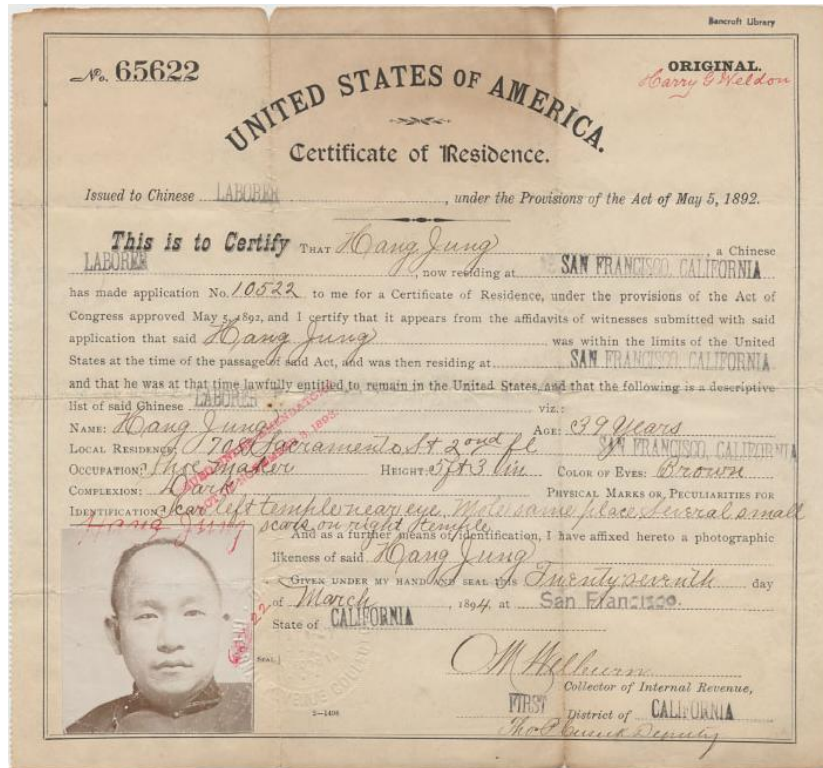 Bancroft Library
No. 65622
ORIGINAL.
Harry G Weldon
UNITED STATES OF AMERICA.
Certificate of Residence.
Issued to Chinese LABORER, under the Provisions of the Act of May 5, 1892.
This is to Certify THAT Hang Jung a Chinese
LABORER, now residing at SAN FRANCISCO, CALIFORNIA
has made application No. 10522 to me for a Certificate of Residence, under the provisions of the Act of
Congress approved May 5, 1892, and I certify that it appears from the affidavits of witnesses submitted with said
application that said Hang Jung was within the limits of the United
States at the time of the passage of said Act, and was then residing at SAN FRANCISCO, CALIFORNIA
and that he was at that time lawfully entitled to remain in the United States, and that the following is a descriptive
list of said Chinese LABORER viz.:
NAME: Hang Jung AGE: 39 Years
LOCAL RESIDENCE: 708 Sacramento St 2ond fl SAN FRANCISCO, CALIFORNIA
OCCUPATION: Shoe maker HEIGHT: 5 ft 3 in COLOR OF EYES: Brown
COMPLEXION: Dark PHYSICAL MARKS OR PECULIARITIES FOR
IDENTIFICATION: Scar left temple near eye. Mole same place Several small
scars on right temple
Hang Jung
And as a further means of identification, I have affixed hereto a photographic
likeness of said Hang Jung
GIVEN UNDER MY HAND AND SEAL this Twenty seventh day
of March, 1894, at San Francisco.
State of CALIFORNIA
SEAL.]
O M Welburn
Collector of Internal Revenue,
FIRST District of CALIFORNIA
2—1496
Deputy